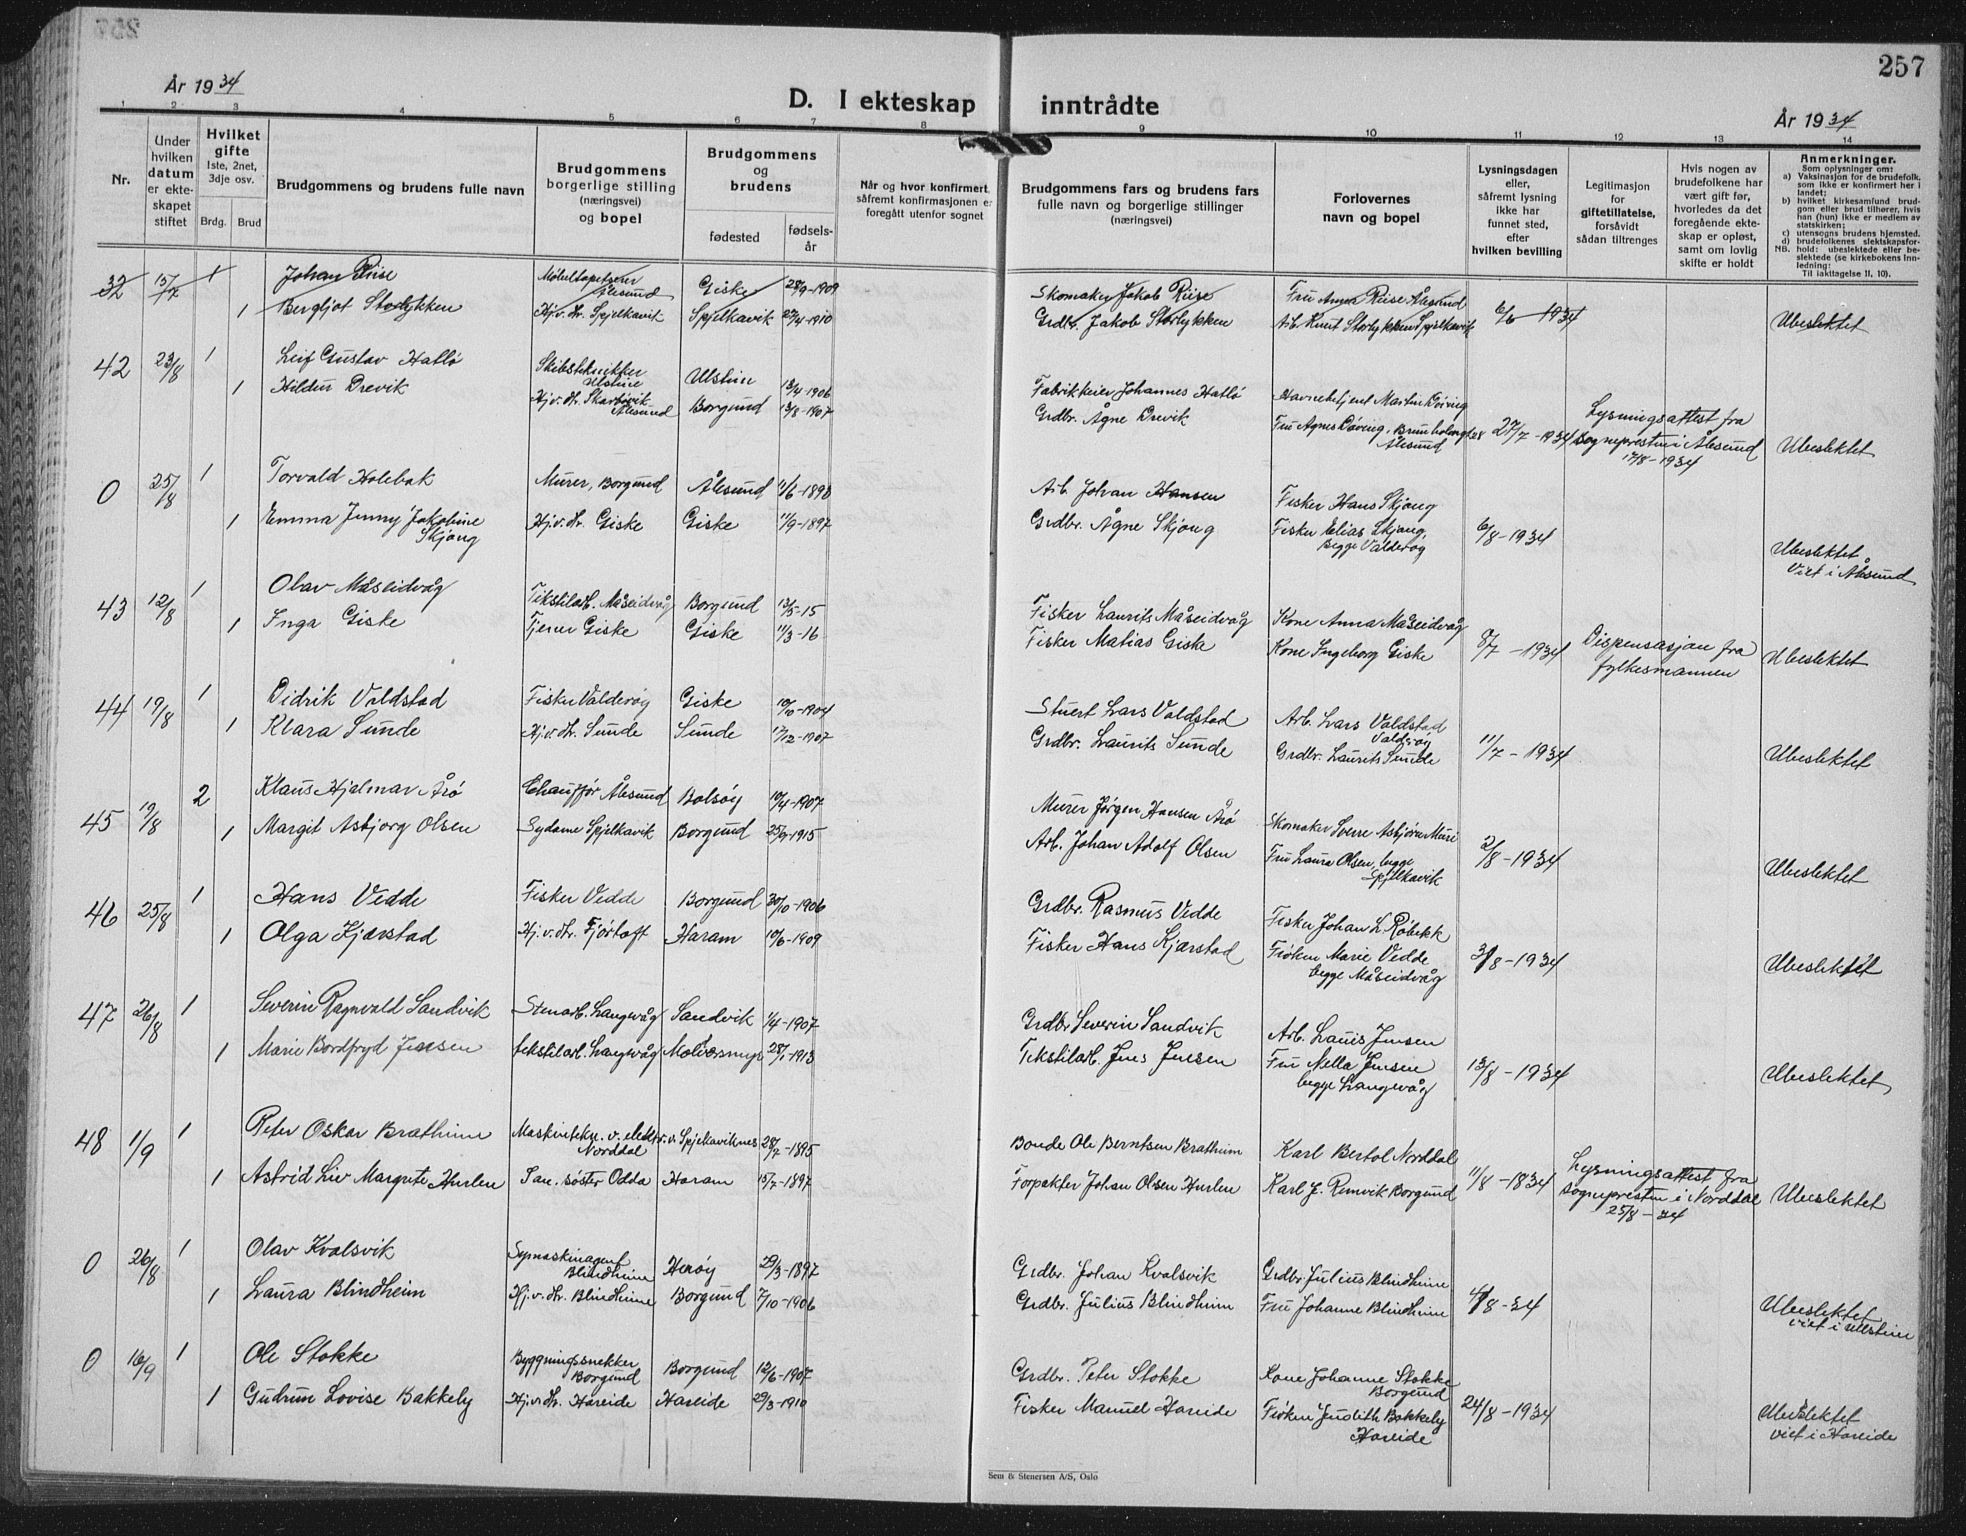 257
År 1934
D. I ekteskap inntrådte
År 1934
1 2 3 4 5 6 7 8 9 10 11 12 13 14
Nr.
Under hvilken datum er ekteskapet stiftet
Hvilket gifte
1ste, 2net, 3dje osv.
Brdg. Brud
Brudgommens og brudens fulle navn
Brudgommens borgerlige stilling (næringsvei) og bopel
Brudgommens og brudens
fødested
fødselsår
Når og hvor konfirmert, såfremt konfirmasjonen er foregått utenfor sognet
Brudgommens fars og brudens fars fulle navn og borgerlige stillinger (næringsvei)
Forlovernes navn og bopel
Lysningsdagen eller, såfremt lysning ikke har funnet sted, efter hvilken bevilling
Legitimasjon for giftetillatelse, forsåvidt sådan tiltrenges
Hvis nogen av brudefolkene har vært gift før, hvorledes da det foregående ekteskap er opløst, samt om lovlig skifte er holdt
Anmerkninger.
Som oplysninger om:
a) Vaksinasjon for de brudefolk, som ikke er konfirmert her i landet;
b) hvilket kirkesamfund brudgom eller brud tilhører, hvis han (hun) ikke er medlem av statskirken;
c) utensogns brudens hjemsted.
d) brudefolkenes slektskapsforhold: ubeslektede eller beslektede (se kirkebokens Innledning:
NB.
Til iakttagelse II, 10).
32 15/7 1 Johan Riise Møbeltapetserer Ålesund Giske 28/9-1909 Skomaker Jakob Riise Fru Anna Riise Ålesund
1 Bergljot Storlykken Hj.v. hr. Spjelkavik Spjelkavik 27/4-1910 Grdbr. Jakob Storlykken Arb. Knut Storlykken Spjelkavik 6/6-1934 Ubeslektet
42 23/8 1 Leif Gustav Hatlø Skibstekniker Ulstein Ulstein 13/4-1906 Fabrikkeier Johannes Hatlø Havnebetjent Martin Døving
1 Hildur Drevik Hj.v. hr. Skarbøvik Ålesund Borgund 13/8-1907 Grdbr. Ågne Drevik Fru Agnes Døving, Ålesund 27/7-1934 Lysningsattest fra sognepresten i Ålesund 17/8-1934 Ubeslektet
0 25/8 1 Torvald Holebak Murer, Borgund Ålesund 11/6-1890 Arb. Johan Hansen Fisker Hans Skjong
1 Emma Jenny Jakobine Skjong Hj.v. hr. Giske Giske 11/9-1897 Grdbr. Ågne Skjong Fisker Elias Skjong, begge Valderøy 6/8-1934 Ubeslektet Viet i Ålesund
43 12/8 1 Olav Måseidvåg Tekstilarb. Måseidvåg Borgund 13/5-15 Fisker Laurits Måseidvåg Kone Anna Måseidvåg
1 Inga Giske Tjener Giske Giske 11/3-16 Fisker Matias Giske Kone Ingeborg Giske 8/7-1934 Dispensasjon fra fylkesmannen Ubeslektet
44 19/8 1 Didrik Valdstad Fisker Valderøy Giske 10/10-1904 Stuert Lars Valdstad Arb. Lars Valdstad Valderøy
1 Klara Sunde Hj.v. hr. Sunde Sunde 17/12-1907 Grdbr. Laurits Sunde Grdbr. Laurits Sunde 11/7-1934 Ubeslektet
45 19/8 2 Klaus Hjalmar Årø Chauffør Ålesund Bolsøy 10/4-1907 Murer Jørgen Hansen Årø Skomaker Sverre Asbjørn Muri
1 Margit Asbjorg Olsen Sydame Spjelkavik Borgund 25/9-1915 Arb. Johan Adolf Olsen Fru Laura Olsen, begge Spjelkavik 2/8-1934 Ubeslektet
46 25/8 1 Hans Vedde Fisker Vedde Borgund 30/10-1906 Grdbr. Rasmus Vedde Fisker Johan L. Røbekk
1 Olga Kjærstad Hj.v. hr. Fjørtoft Haram 10/6-1909 Fisker Hans Kjærstad Frøken Marie Vedde begge Måseidvåg 3/8-1934 Ubeslektet
47 26/8 1 Severin Ragnvald Sandvik Stenarb. Langevåg Sandvik 1/4-1907 Grdbr. Severin Sandvik Arb. Lauis Jensen
1 Marie Bordfryd Jensen Tekstilarb. Langevåg 28/1-1913 Tekstilarb. Jens Jensen Fru Nella Jensen begge Langevåg 13/8-1934 Ubeslektet
48 1/9 1 Peter Oskar Brathein Maskintekn. v. elektr.v. Norddal Spjelkaviknes 28/7-1895 Bonde Ole Berntsen Brathein Karl Bertol Norddal
1 Astrid Liv Margrete Hurlen San. søster Odda Haram 15/7-1897 Forpakter Johan Olsen Hurlen Karl J. Remvik Borgund 11/8-1834 Lysningsattest fra sognepresten i Norddal 25/8-34 Ubeslektet
0 26/8 1 Olav Kvalsvik Symaskinagent Blindheim Herøy 29/3-1897 Grdbr. Johan Kvalsvik Grdbr. Julius Blindheim
1 Laura Blindheim Hj.v. hr. Blindheim Borgund 7/10-1906 Grdbr. Julius Blindheim Fru Johanne Blindheim 4/8-34 Ubeslektet viet i Ulstein
0 16/9 1 Ole Stokke Bygningssnekker Borgund Borgund 12/6-1907 Grdbr. Peter Stokke Kone Johanne Stokke Borgund
1 Gudrun Lovise Bakkely Hj.v. hr. Hareide Hareide 29/3-1910 Fisker Manuel Hareide Frøken Jendith Bakkely Hareide 24/8-1934 Ubeslektet viet i Hareide
Sem & Stenersen A/S, Oslo